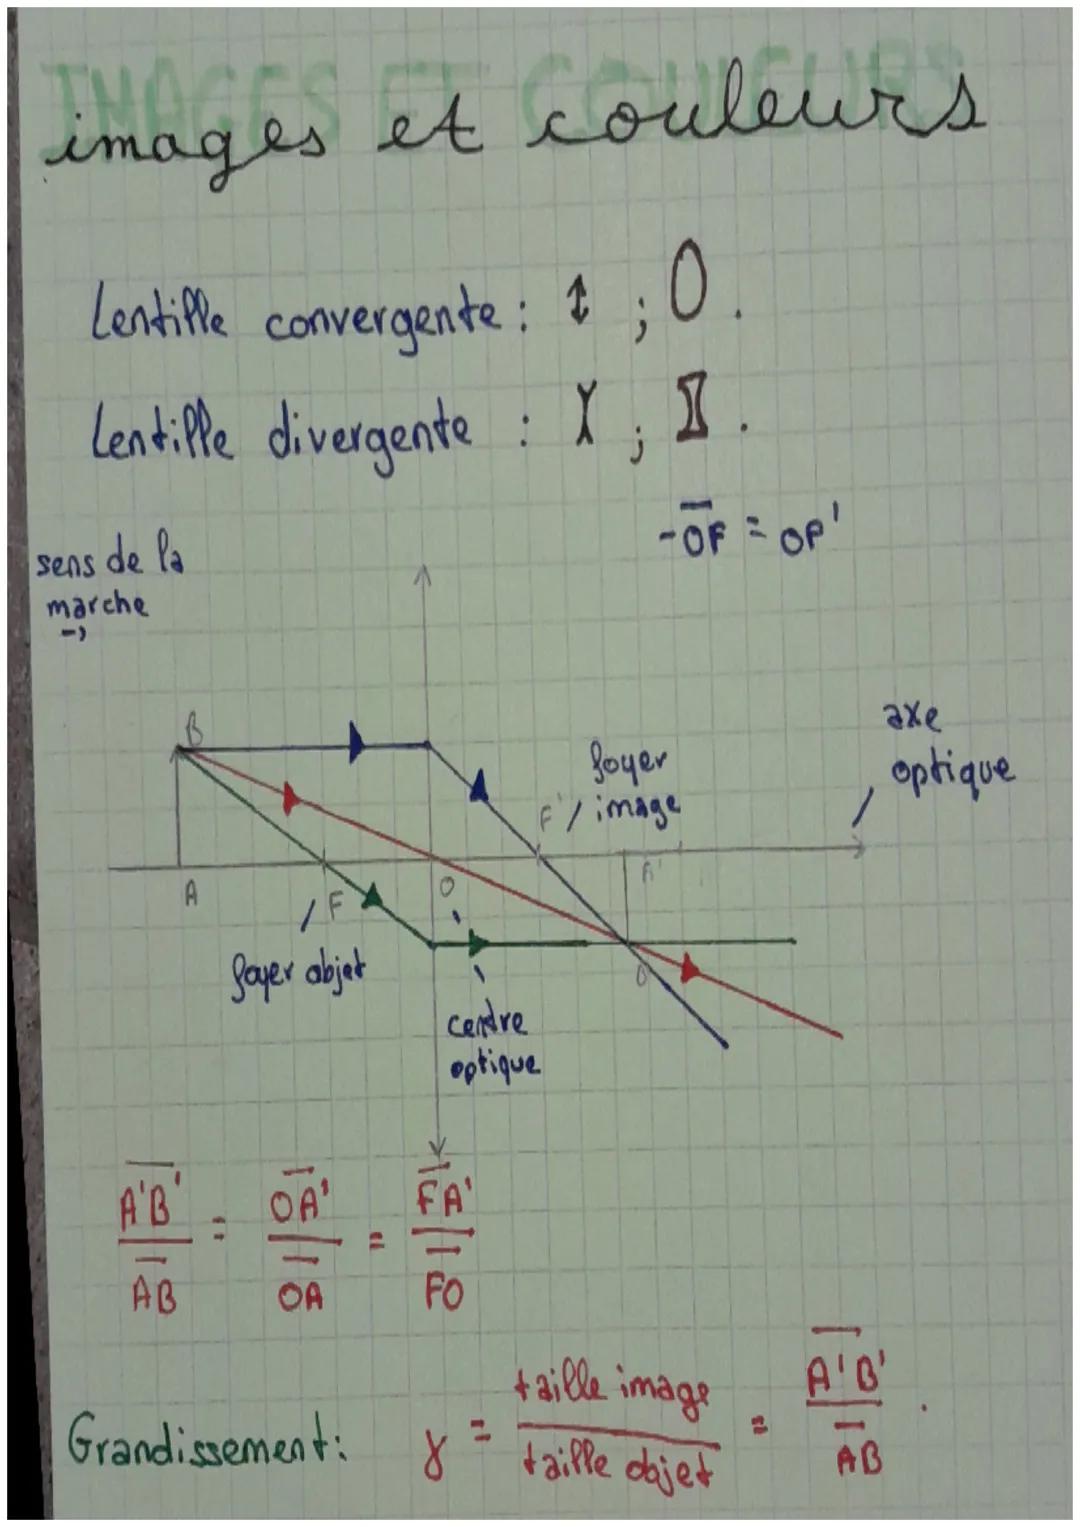 IMAGES ET COULEURS
images et couleurs
Lentille convergente : ↕ ; 0 .
Lentille divergente : ; .
-OF = OF'
sens de la
marche
→
axe
optique
B
foyer
image
F'
A
F
O
A'
foyer objet
B'
centre
optique
A'B' / AB = OA' / OA = FA' / FO
Grandissement : γ = taille image / taille objet = A'B' / AB .